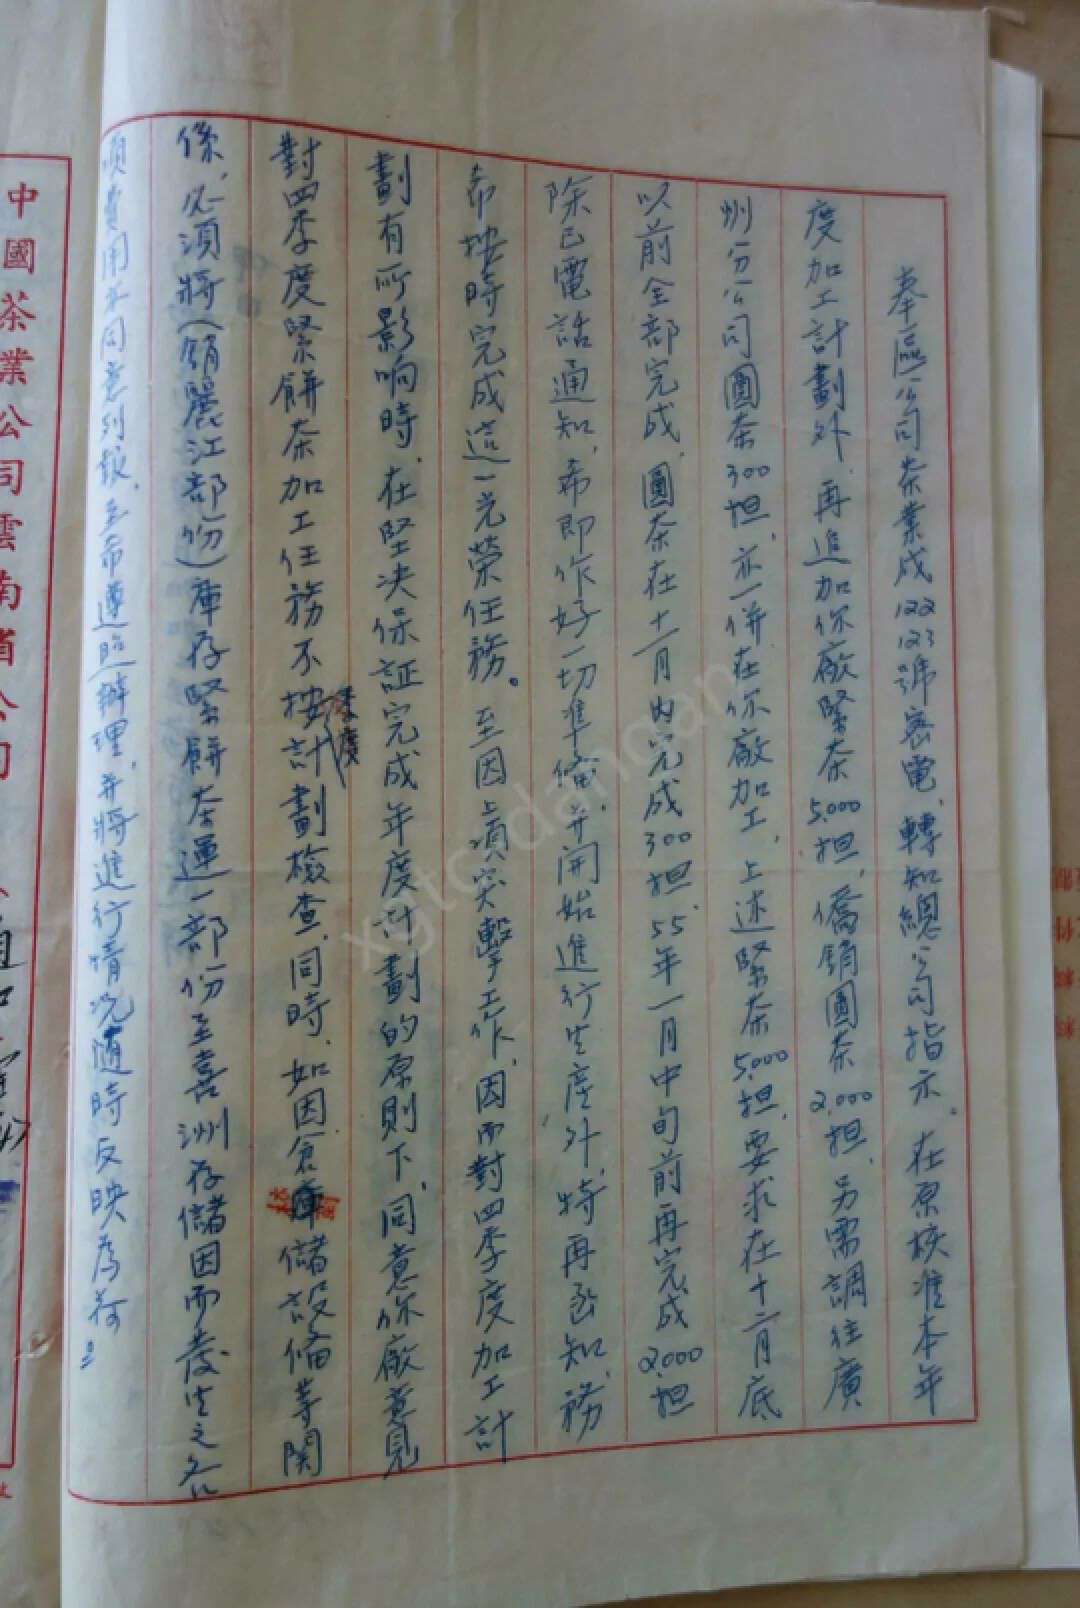 奉區公司茶業成122 123號密電,轉知總公司指示。在原核准本年
度加工計劃外,再追加你廠緊茶5,000担,僑銷圓茶2,000担,另需調往廣
州分公司圓茶300担,亦一併在你廠加工,上述緊茶5,000担,要求在十二月底
以前全部完成,圓茶在十一月內完成300担,55年一月中旬前再完成2,000担
除已電話通知,希即作好一切準備,并開始進行生產外,特再函知,務
希按時完成這一光榮任務。至因上項突擊工作,因而對四季度加工計
劃有所影响時,在堅決保証完成年度計劃的原則下,同意你廠意見
對四季度緊餅茶加工任務不按季度計劃檢查,同時,如因倉庫儲設備等關
係,必須將(銷麗江部份)庫存緊餅茶運一部份至喜洲存儲因而發生之各
項費用亦同意列報,並希遵照辦理,并將進行情况隨時反映為荷
中國茶業公司雲南省公司
xgtcdangan